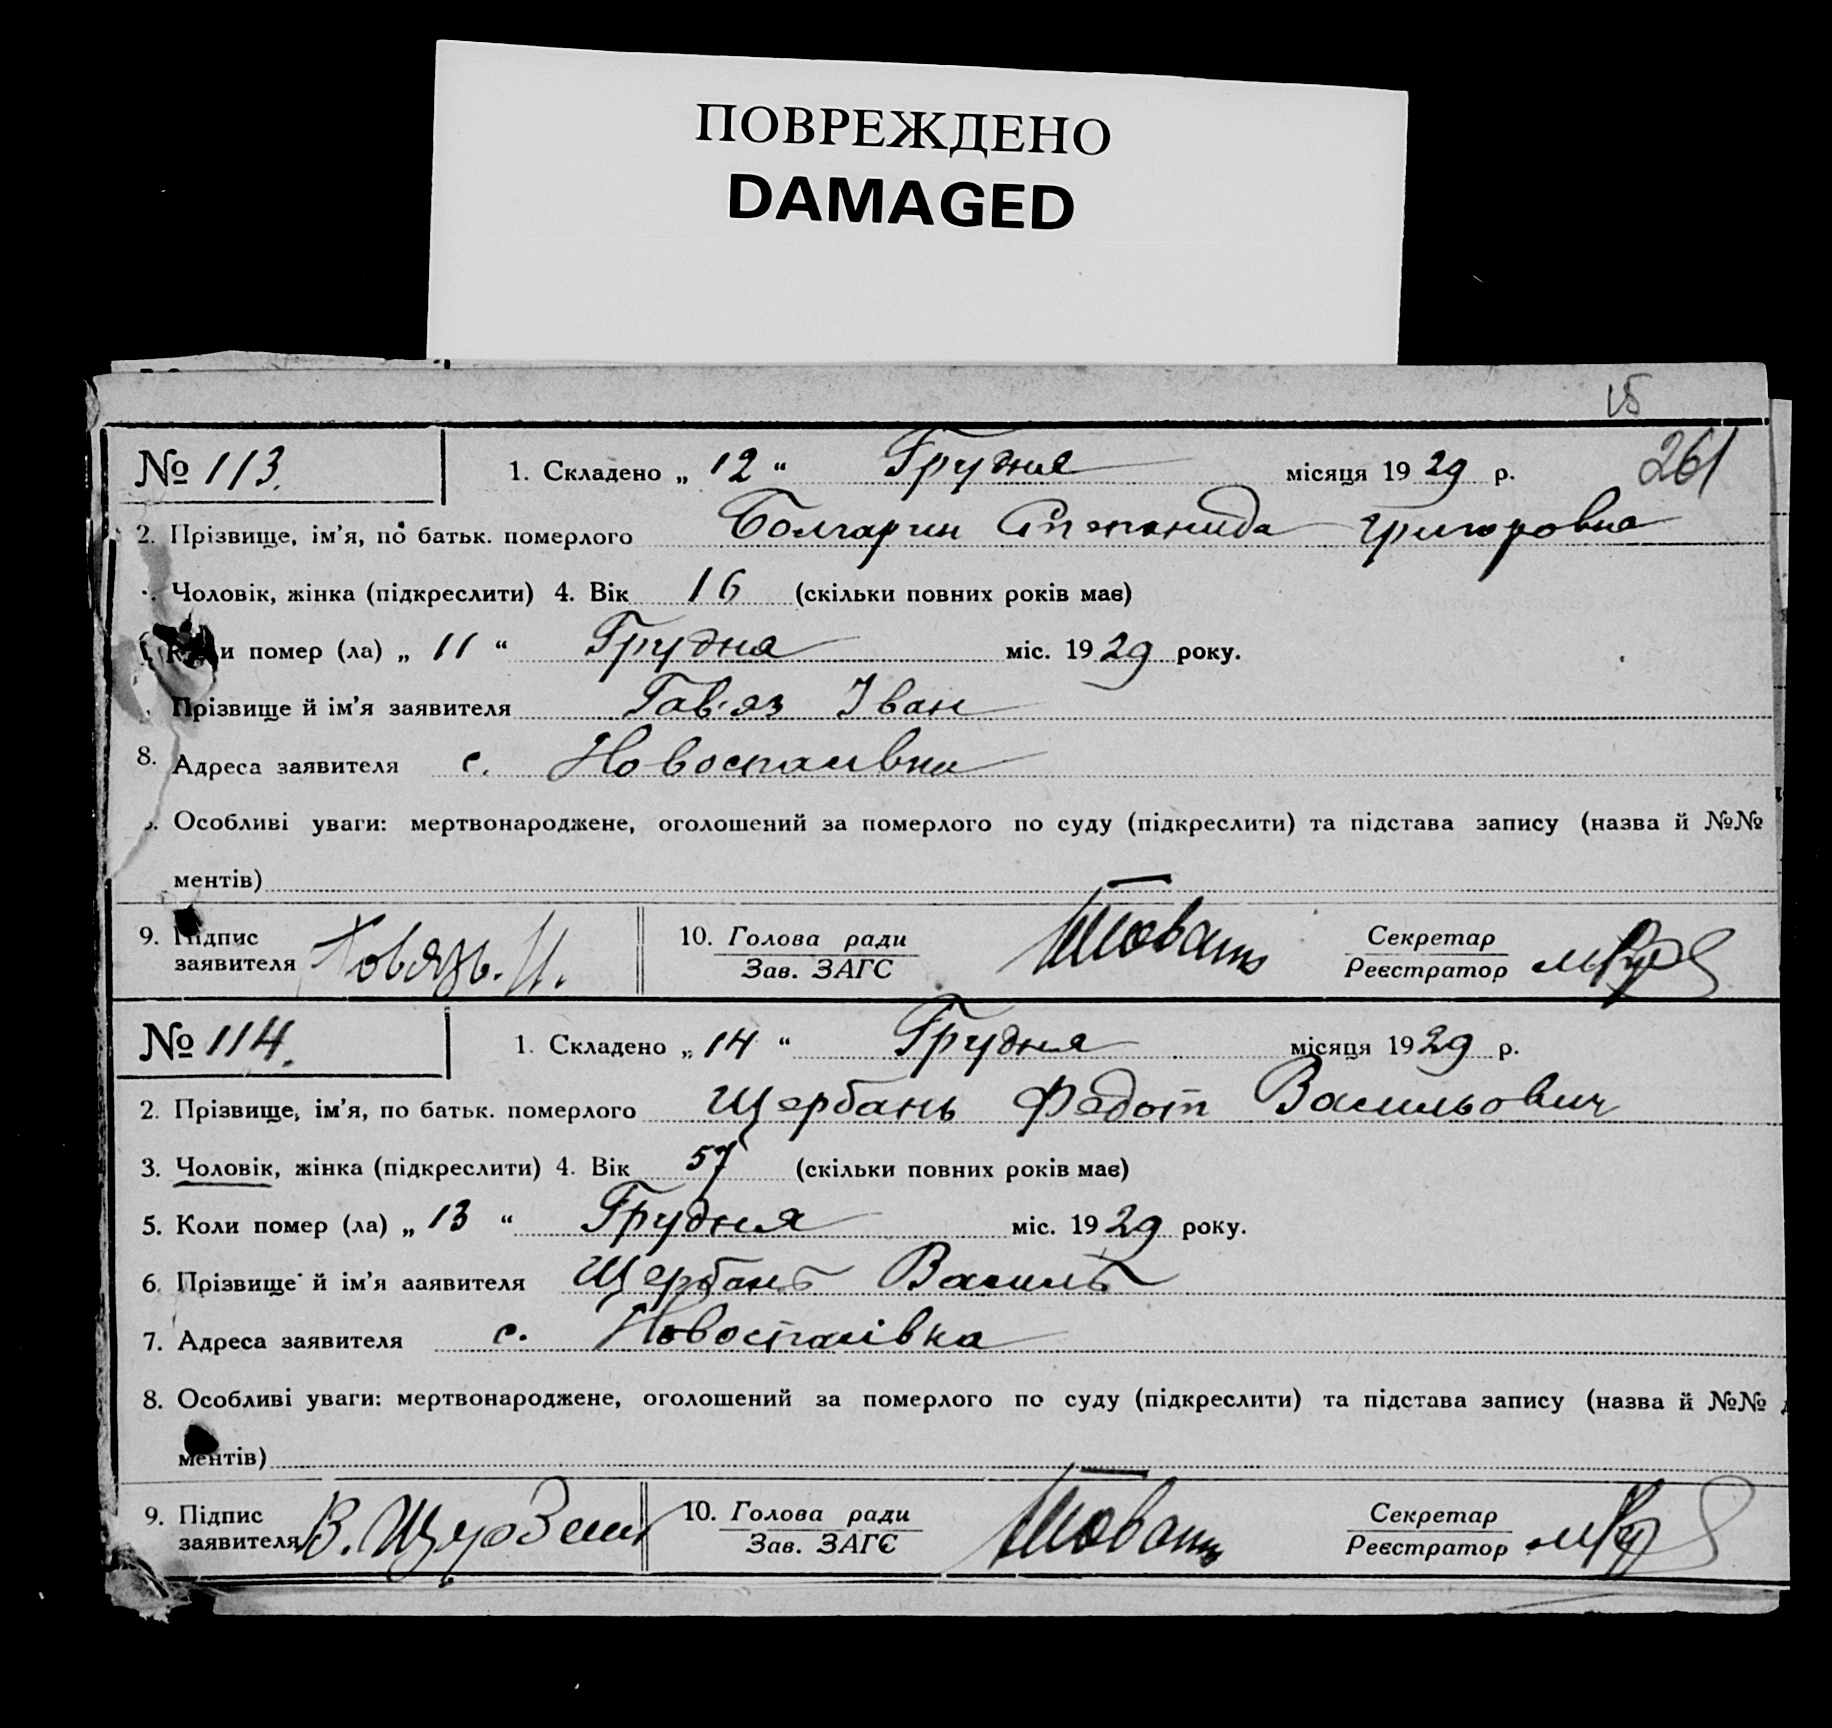 ПОВРЕЖДЕНО
DAMAGED
15
№ 113. 1. Складено „ 12 “ Грудня місяця 19 29 р. 261
2. Прізвище, ім’я, по батьк. померлого Болгарин Степанида Григоровна
Чоловік, жінка (підкреслити) 4. Вік 16 (скільки повних років має)
и помер (ла) „ 11 “ Грудня міс. 19 29 року.
Прізвище й ім’я заявителя Гав’яз Іван
8. Адреса заявителя с. Новоспаівка
Особливі уваги: мертвонароджене, оголошений за померлого по суду (підкреслити) та підстава запису (назва й №№
ментів)
9. Підпис заявителя 10. Голова ради Секретар
Зав. ЗАГС Реєстратор
№ 114. 1. Складено „ 14 “ Грудня місяця 19 29 р.
2. Прізвище, ім’я, по батьк. померлого Щербань Федот Васильович
3. Чоловік, жінка (підкреслити) 4. Вік 57 (скільки повних років має)
5. Коли помер (ла) „ 13 “ Грудня міс. 19 29 року.
6. Прізвище й ім’я ааявителя Щербань Василь
7. Адреса заявителя с. Новоспаівка
8. Особливі уваги: мертвонароджене, оголошений за померлого по суду (підкреслити) та підстава запису (назва й №№
ментів)
9. Підпис заявителя 10. Голова ради Секретар
Зав. ЗАГС Реєстратор